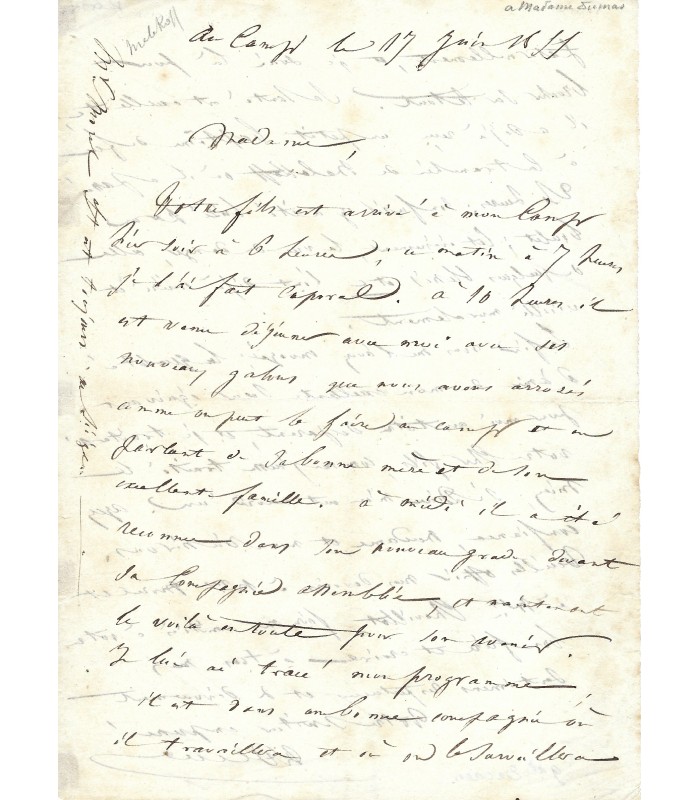 a Madame Dumas
Au Camp le 17 Juin 1855
Madame,
Votre fils est arrivé à mon Camp
hier soir à 6 heures, ce matin à 7 heures
je l'ai fait caporal. à 10 heures il
est venu déjeuner avec moi avec ses
nouveaux galons que nous avons arrosés
comme on peut le faire au camp et en
parlant de sa bonne mère et de son
excellente famille. à midi il a été
reconnu dans son nouveau grade devant
sa Compagnie assemblée, et maintenant
le voilà en route pour son avenir.
Je lui ai tracé mon programme,
il est dans une bonne compagnie où
il travaillera et où on le surveillera
est toujours